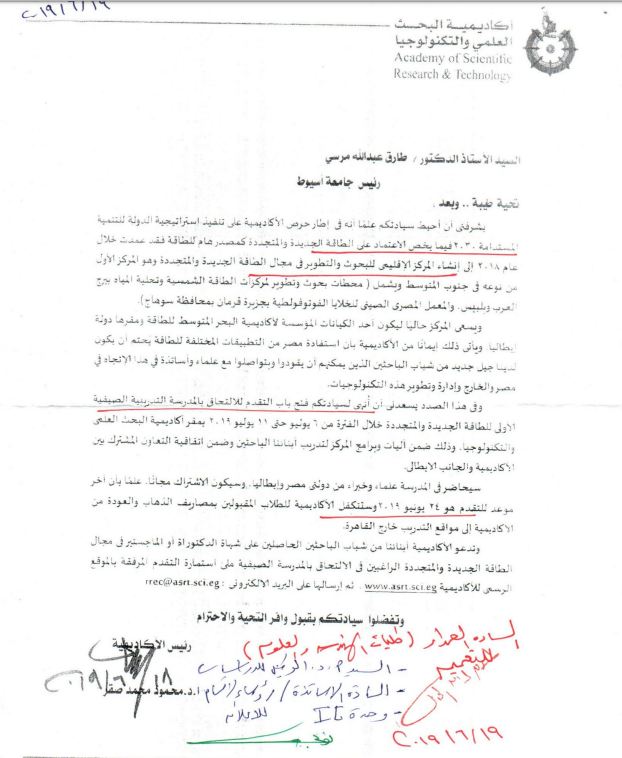 ٢٠١٩/٦/١٩
أكاديمية البحث
العلمي والتكنولوجيا
Academy of Scientific
Research & Technology
السيد الأستاذ الدكتور / طارق عبدالله مرسي
رئيس جامعة أسيوط
تحية طيبة .. وبعد ،
يشرفنى أن أحيط سيادتكم علمًا أنه فى إطار حرص الأكاديمية على تنفيذ استراتيجية الدولة للتنمية
المستدامة ٢٠٣٠ فيما يخص الاعتماد على الطاقة الجديدة والمتجددة كمصدر هام للطاقة فقد عمدت خلال
عام ٢٠١٨ إلى إنشاء المركز الإقليمى للبحوث والتطوير فى مجال الطاقة الجديدة والمتجددة وهو المركز الأول
من نوعه فى جنوب المتوسط ويشمل ( محطات بحوث وتطوير لمركزات الطاقة الشمسية وتحلية المياه ببرج
العرب وبلبيس. والمعمل المصرى الصينى للخلايا الفوتوفولطية بجزيرة قرمان بمحافظة سوهاج).
ويسعى المركز حاليا ليكون أحد الكيانات المؤسسة لأكاديمية البحر المتوسط للطاقة ومقرها دولة
إيطاليا. ويأتى ذلك إيمانًا من الأكاديمية بأن استفادة مصر من التطبيقات المختلفة للطاقة يحتم أن يكون
لدينا جيل جديد من شباب الباحثين الذين يمكنهم أن يقودوا ويتواصلوا مع علماء وأساتذة فى هذا الاتجاه فى
مصر والخارج وإدارة وتطوير هذه التكنولوجيات.
وفى هذا الصدد يسعدنى أن أنهى لسيادتكم فتح باب التقدم للالتحاق بالمدرسة التدريبية الصيفية
الأولى للطاقة الجديدة والمتجددة خلال الفترة من ٦ يوليو حتى ١١ يوليو ٢٠١٩ بمقر أكاديمية البحث العلمى
والتكنولوجيا. وذلك ضمن آليات وبرامج المركز لتدريب أبنائنا الباحثين وضمن اتفاقية التعاون المشترك بين
الأكاديمية والجانب الايطالى.
سيحاضر فى المدرسة علماء وخبراء من دولتى مصر وإيطاليا، وسيكون الاشتراك مجانًا. علمًا بأن آخر
موعد للتقدم هو ٢٤ يونيو ٢٠١٩ وستتكفل الأكاديمية للطلاب المقبولين بمصاريف الذهاب والعودة من
الأكاديمية إلى مواقع التدريب خارج القاهرة.
وتدعو الأكاديمية أبنائنا من شباب الباحثين الحاصلين على شهادة الدكتوراة أو الماجستير فى مجال
الطاقة الجديدة والمتجددة الراغبين فى الالتحاق بالمدرسة الصيفية ملئ استمارة التقدم المرفقة بالموقع
الرسمى للأكاديمية www.asrt.sci.eg . ثم إرسالها على البريد الالكترونى : rrec@asrt.sci.eg
وتفضلوا سيادتكم بقبول وافر التحية والاحترام
رئيس الأكاديمية
السادة العمداء ( كليات الهندسة والعلوم )
للتعميم
٢٠١٩/٦/١٨
أ.د.محمود محمد صقر
- السادة الأساتذة / رؤساء الأقسام
- وحدة IT للإعلان
٢٠١٩/٦/١٩